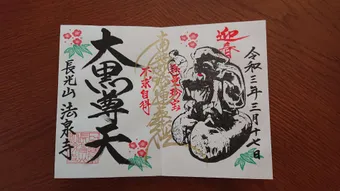 迎春
令和三年三月十七日
無量珍宝
不求自得
大黒尊天
長光山 法泉寺